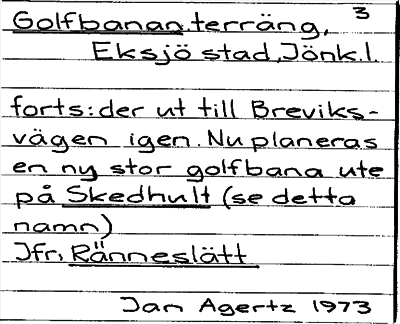 Golfbanan, terräng, 3
Eksjö stad, Jönk. l.
forts: der ut till Breviks-
vägen igen. Nu planeras
en ny stor golfbana ute
på Skedhult (se detta
namn)
Jfr, Ränneslätt
Jan Agertz 1973